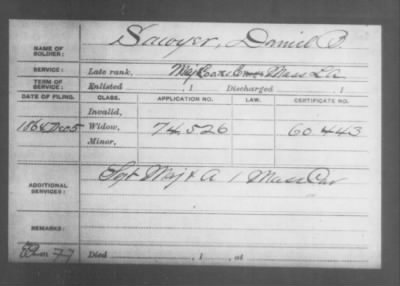 NAME OF SOLDIER: Sawyer, Daniel B.
SERVICE: Late rank, Maj Mass
TERM OF SERVICE: Enlisted , 1 Discharged , 1
DATE OF FILING. CLASS. APPLICATION NO. LAW. CERTIFICATE NO.
Invalid,
1864 Dec 5 Widow, 74,526 60 443
Minor,
ADDITIONAL SERVICES: Sgt Maj & A 1 Mass Cav
REMARKS:
77 Died , 1 , at